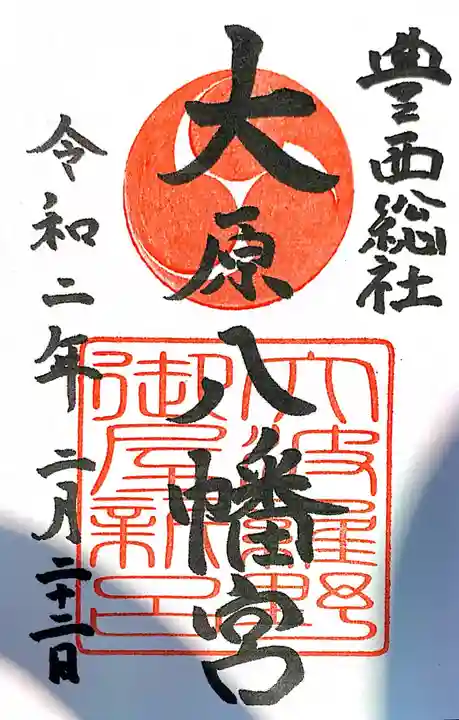 豊西総社
大原八幡宮
令和二年二月二十二日